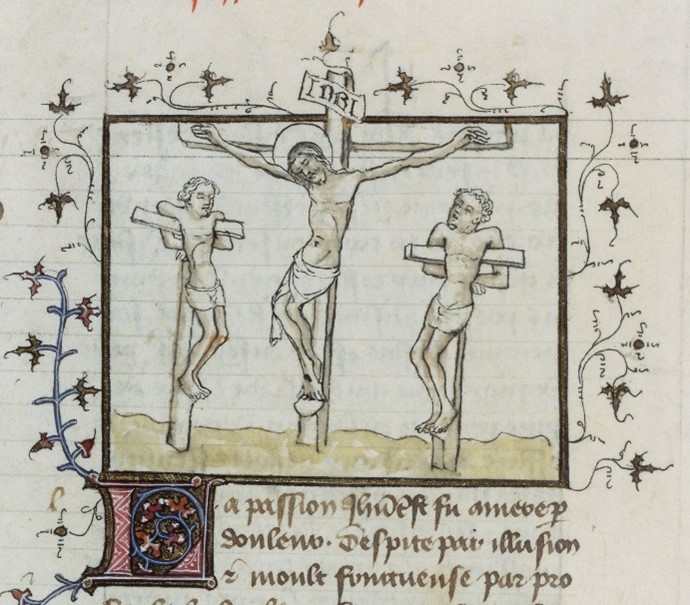 INRI
La passion Jhucrist fu amere p
douleur. Despite par illusion
⁊ moult fructueuse par pro